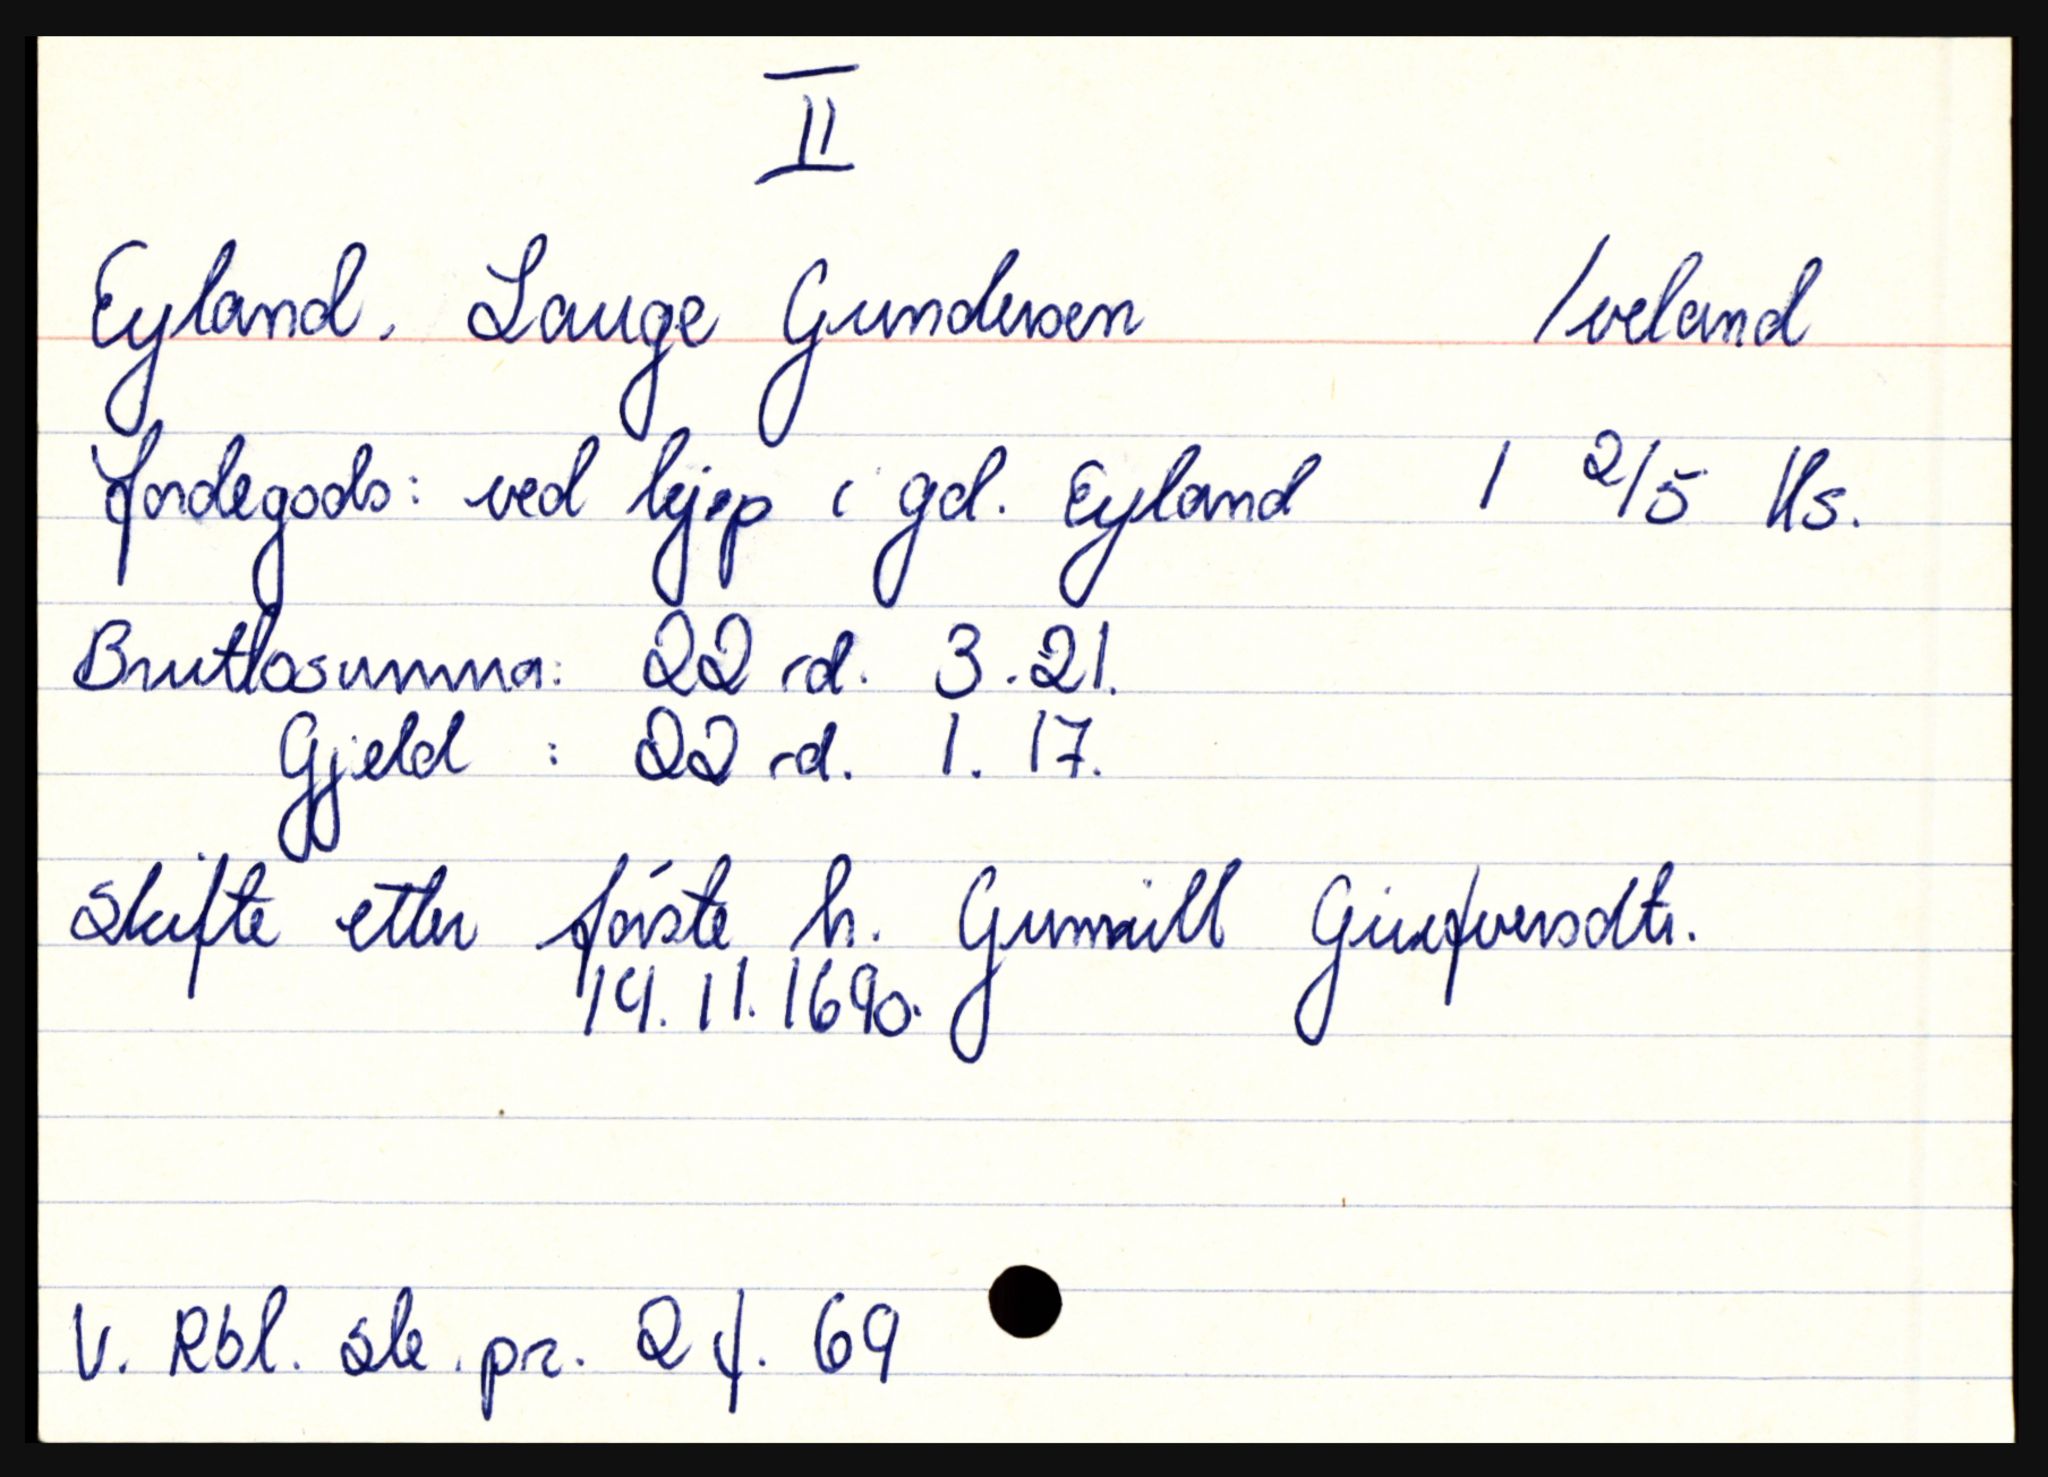 II
Eyland. Lauge Gundersen Iveland
Jordegods: ved kjøp i gd. Eyland 1 2/5 ks.
Bruttosumma: 22 rd. 3.21.
Gjeld : 22 rd. 1. 17.
Skifte etter første h. Gunnill
14.11.1690.
V. Rbl. sk. pr. 2 f. 69